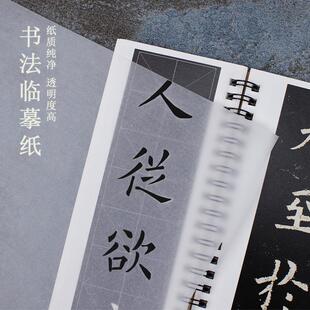 书法临摹纸
纸质纯净 透明度高
人從欲
至於